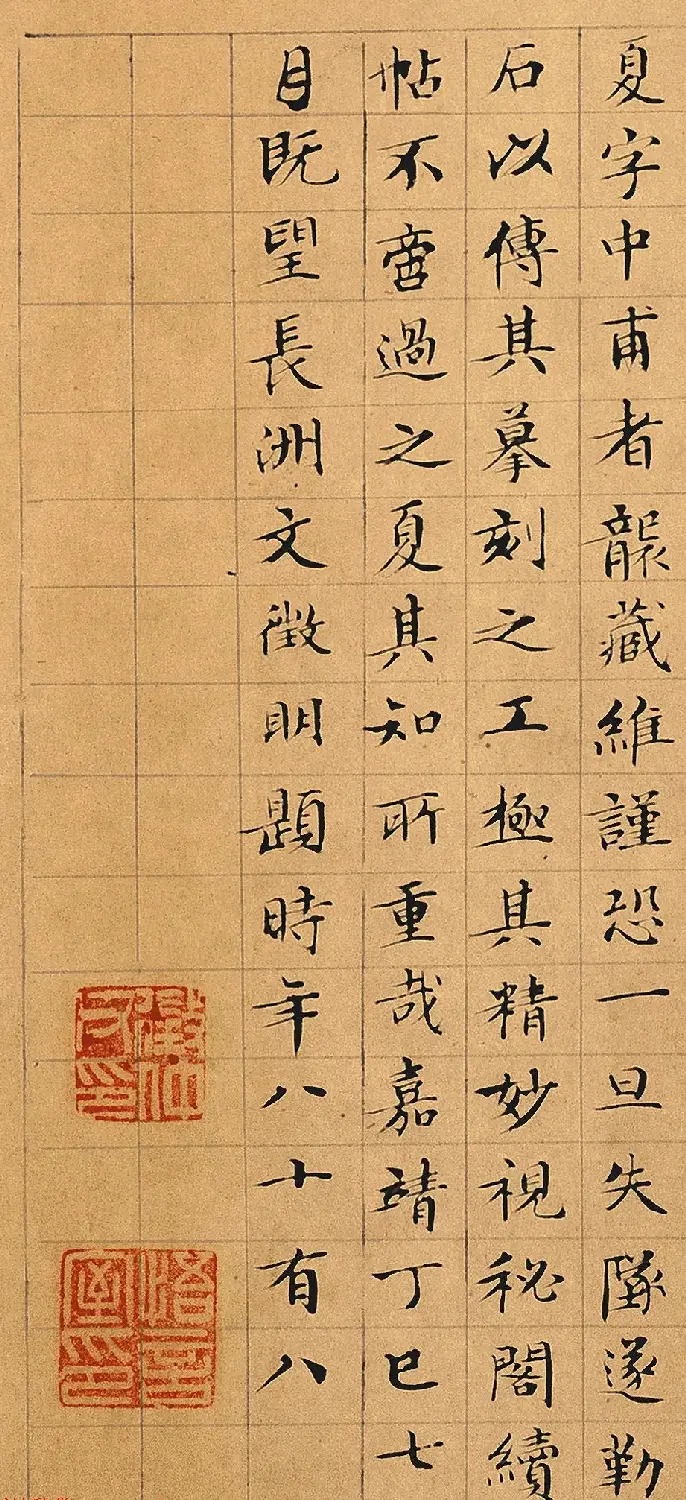 夏字中甫者襲藏維謹恐一旦失墜遂勒
石以傳其摹刻之工極其精妙視秘閣續
帖不啻過之夏其知所重哉嘉靖丁巳七
月既望長洲文徵明題時年八十有八
徵仲父印
悟言室印